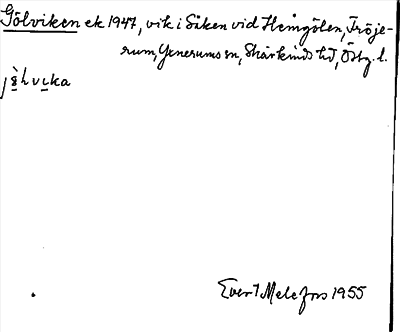 Gölviken ek 1947, vik i Såken vid Hemgölen, Fröje-
rum, Yxnerums sn, Skärkinds hd, Östg. l.
Evert Melefors 1955